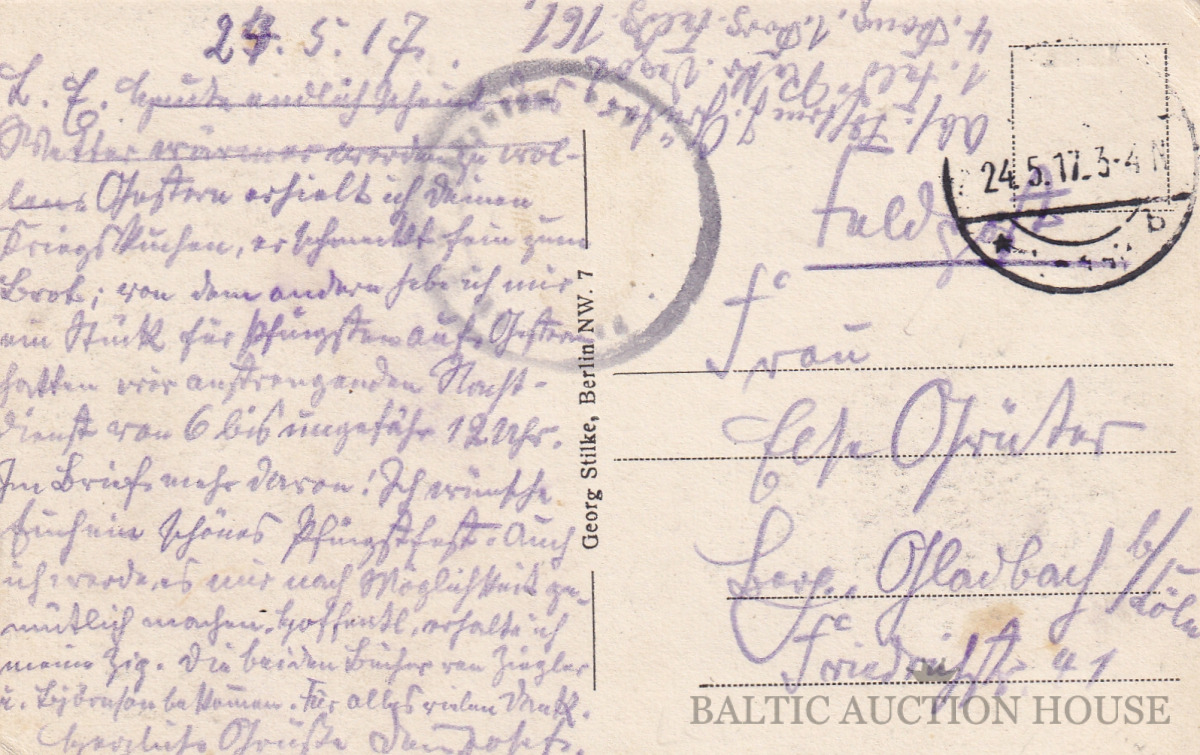 24. 5. 17.
L. E. Heute endlich scheint das
Wetter wärmer werden zu wol-
len. Gestern erhielt ich deinen
Kriegskuchen, er schmeckt fein zum
Brot; von dem andern hebe ich mir
ein Stück für Pfingsten auf. Gestern
hatten wir anstrengenden Nacht-
dienst von 6 bis ungefähr 12 Uhr.
Im Brief mehr davon! Ich wünsche
Euch ein schönes Pfingstfest. Auch
ich werde es mir nach Möglichkeit ge-
mütlich machen. Hoffentl. erhalte ich
meine Zig. Die beiden Bücher von Ziegler
u. Björnson bekommen. Für alles vielen Dank.
Herzliche Grüße Dein Josef.
Georg Stilke, Berlin NW. 7
Abs. J. Grüter
161.
24.5.17. 3-4 N
Feldpost
Frau
Else Grüter
Berg. Gladbach b/
Köln
Friedrichstr. 41
BALTIC AUCTION HOUSE